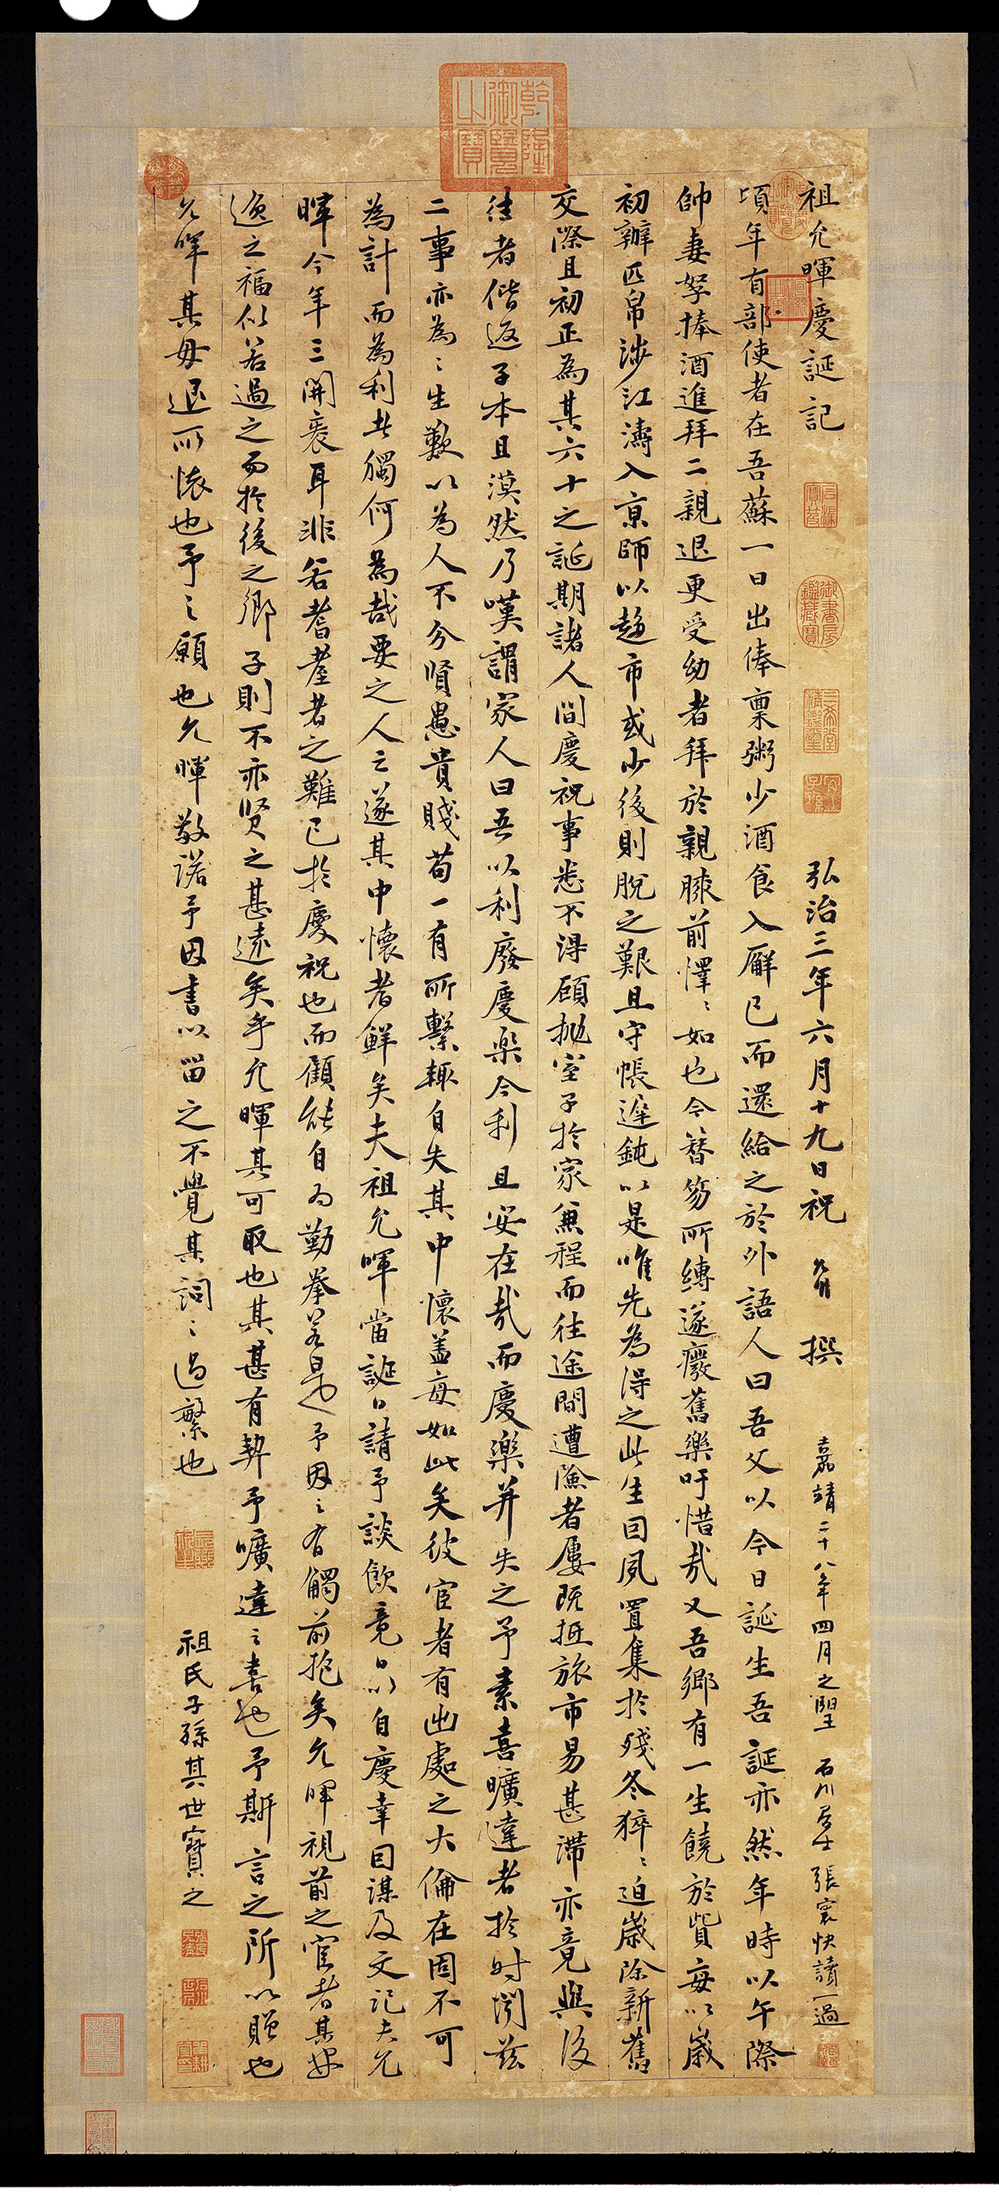 祖允暉慶誕記
弘治三年六月十九日祝 撰
嘉靖二十八年四月之望 石川居士張寰快讀一過
頃年有部使者在吾蘇一日出俸稟粥少酒食入廨已而還給之於外語人曰吾父以今日誕生吾誕亦然年時以午際
帥妻孥捧酒進拜二親退更受幼者拜於親膝前懌〻如也今簪笏所縛遂癈舊樂吁惜哉又吾鄉有一生饒於貲每以歲
初辦匹帛涉江濤入京師以趍市或少後則脫之艱且守帳遲鈍以是唯先為得之此生囙夙置集於殘冬猝〻迫歲除新舊
交際且初正為其六十之誕期諸人間慶祝事悉不得顧拋室子於家兼程而往途間遭險者屢既抵旅市易甚滯亦竟與後
往者偕返子本且漠然乃嘆謂家人曰吾以利廢慶樂今利且安在哉而慶樂并失之予素喜曠達者於時閔茲
二事亦為〻生歎以為人不分賢愚貴賤苟一有所繫輒自失其中懷盖每如此矣彼宦者有出處之大倫在固不可
為計而為利者獨何為哉要之人之遂其中懷者鮮矣夫祖允暉當誕日請予談飲竟日以自慶幸囙謀及文記夫允
暉今年三開袠耳非若耆耋者之難已於慶祝也而顧能自為勤拳若是也予因之有觸前抱矣允暉視前之宦者其
適之福似若過之而於後之鄉子則不亦賢之甚遠矣乎允暉其可取也其甚有契予曠達之喜也予斯言之所以贈也
允暉其毋退所懷也予之願也允暉敬諾予因書以留之不覺其詞〻過繁也
祖氏子孫其世寶之
乾隆御覽之寶
石渠寶笈
御書房鑑藏寶
三希堂精鑑璽
宜子孫